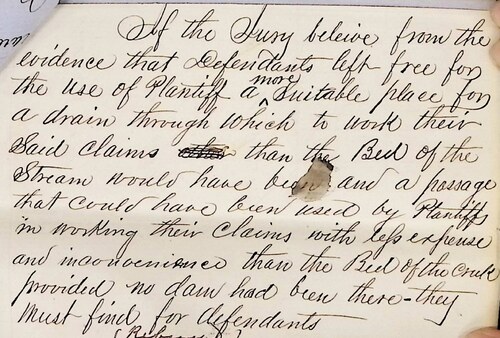 If the Jury beleive from the
evidence that Defendants left free for
the use of Plantiff a more Suitable place for
a drain through which to work their
Said claims than the Bed of the
Stream would have been and a passage
that could have been used by Plantiffs
in working their claims with less expense
and inconvenience than the Bed of the Creek
provided no dam had been there - they
must find for defendants